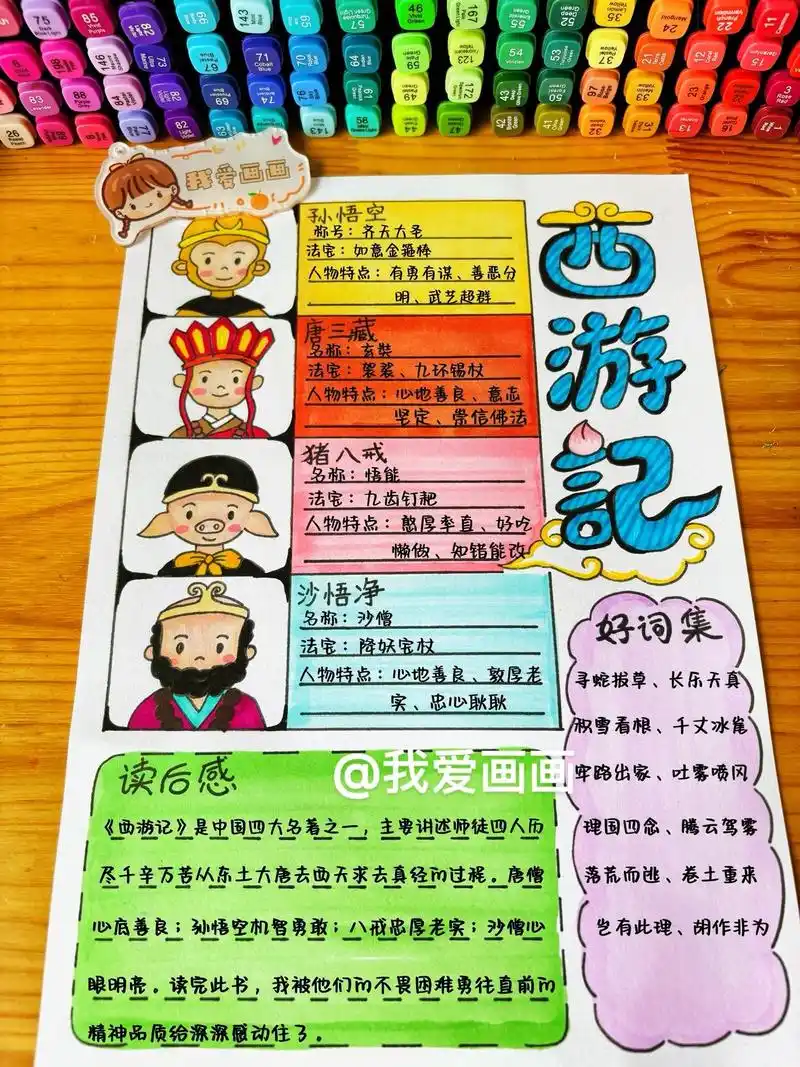 我爱画画
孙悟空
称号：齐天大圣
法宝：如意金箍棒
人物特点：有勇有谋、善恶分
明、武艺超群
唐三藏
名称：玄奘
法宝：袈裟、九环锡杖
人物特点：心地善良、意志
坚定、崇信佛法
猪八戒
名称：悟能
法宝：九齿钉耙
人物特点：憨厚率直、好吃
懒做、知错能改
沙悟净
名称：沙僧
法宝：降妖宝杖
人物特点：心地善良、敦厚老
实、忠心耿耿
西游記
好词集
寻蛇拨草、长乐天真
积雪看根、千丈冰崖
牢路出家、吐雾喷风
理国四念、腾云驾雾
落荒而逃、卷土重来
岂有此理、胡作非为
@我爱画画
读后感
《西游记》是中国四大名著之一，主要讲述师徒四人历
尽千辛万苦从东土大唐去西天求去真经的过程。唐僧
心底善良；孙悟空机智勇敢；八戒忠厚老实；沙僧心
眼明亮。读完此书，我被他们的不畏困难勇往直前的
精神品质给深深感动住了。